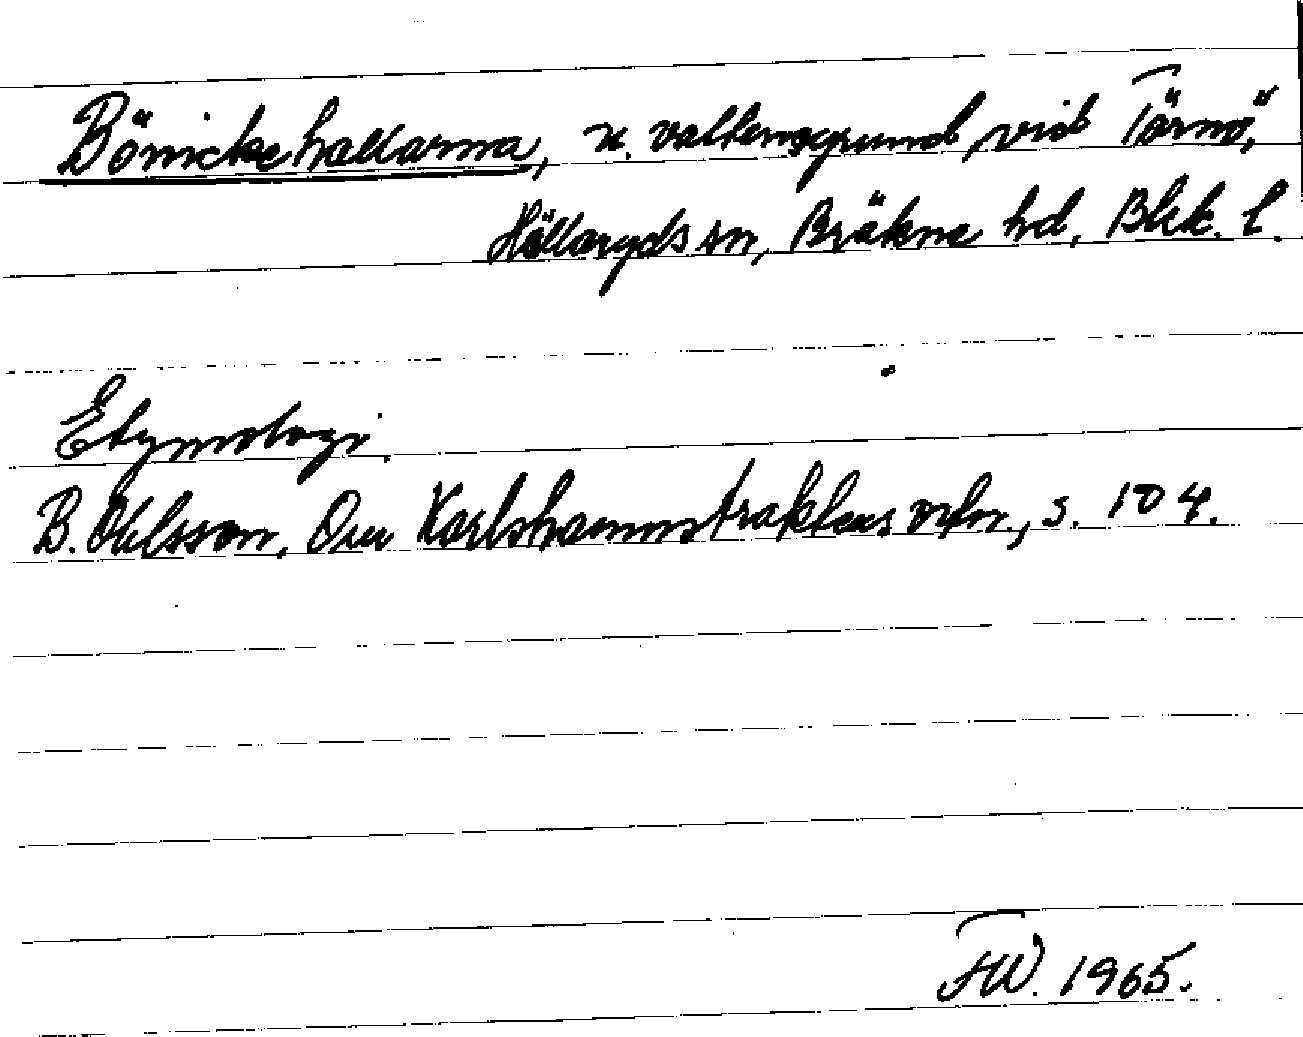 Bönickehallarna, u. vattensgrund, vid Tärnö,
Hällaryds sn, Bräkne hd, Blek. l.
Etymologi.
B. Ohlsson, Om Karlshamnstraktens ortn., s. 104.
FW. 1965.